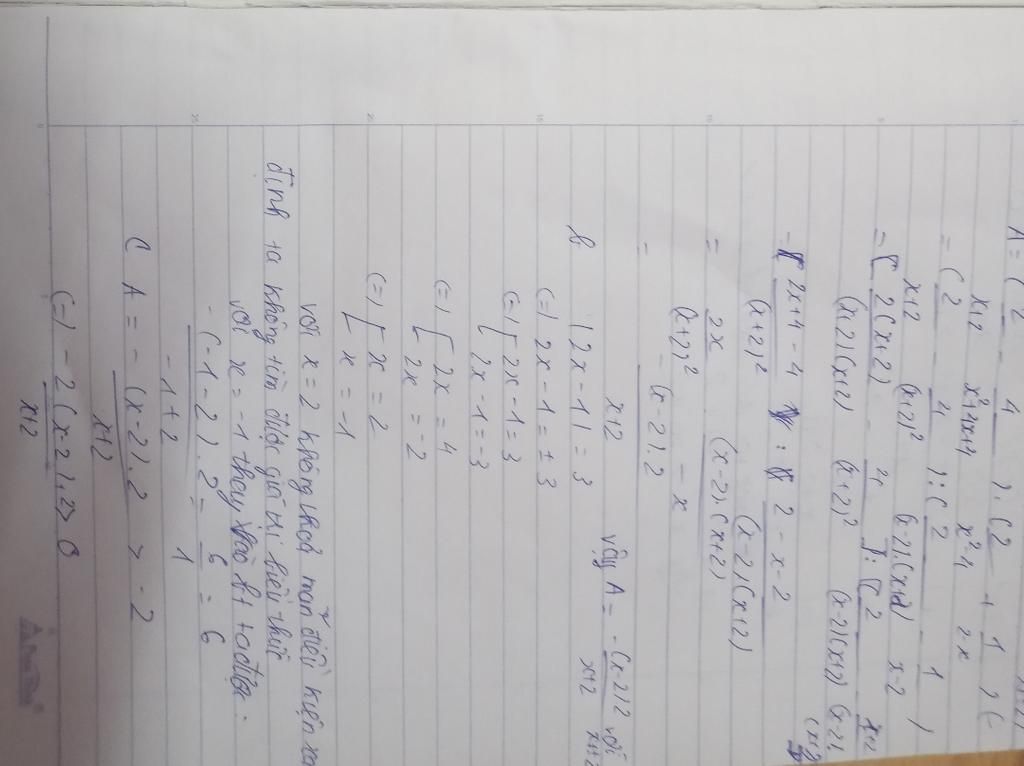 A = ( 2/x+2 - 4/x²+4x+4 ) : ( 2/x²-4 + 1/2-x ) (
= ( 2/x+2 - 4/(x+2)² ) : ( 2/(x-2).(x+2) - 1/x-2 )
= [ 2(x+2)/(x+2)(x+2) - 4/(x+2)² ] : [ 2/(x-2)(x+2) - x+2/(x-2)(x+2)
= 2x+4-4/(x+2)² : 2-x-2/(x-2)(x+2)
= 2x/(x+2)² . (x-2).(x+2)/-x
= -(x-2).2/x+2 vậy A = -(x-2)2/x+2 với
b |2x-1| = 3
(=) 2x-1 = ±3
(=) [ 2x-1=3
[ 2x-1=-3
(=) [ 2x = 4
[ 2x = -2
(=) [ x = 2
[ x = -1
với x = 2 không thoả mãn điều kiện xá
định ta không tìm được giá trị biểu thức
với x = -1 thay vào A ta được:
-(-1-2).2/-1+2 = 6/1 = 6
C A = -(x-2).2/x+2 > -2
(=) -2(x-2).2/x+2 > 0